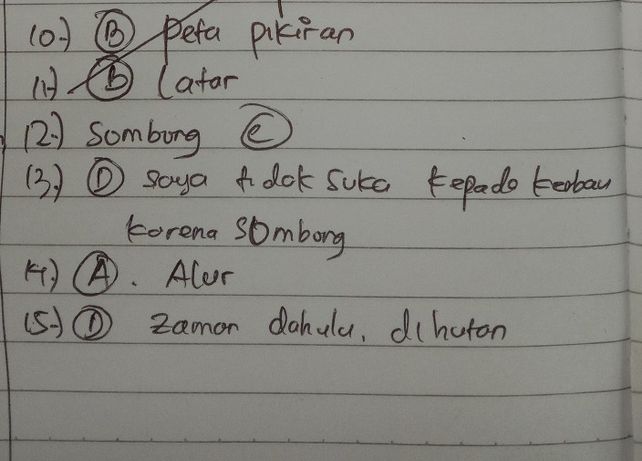 10.) B peta pikiran
11.) B latar
12.) sombong C
13.) D saya tidak suka kepada kerbau
karena sombong
14.) A. Alur
15.) D zaman dahulu, dihutan